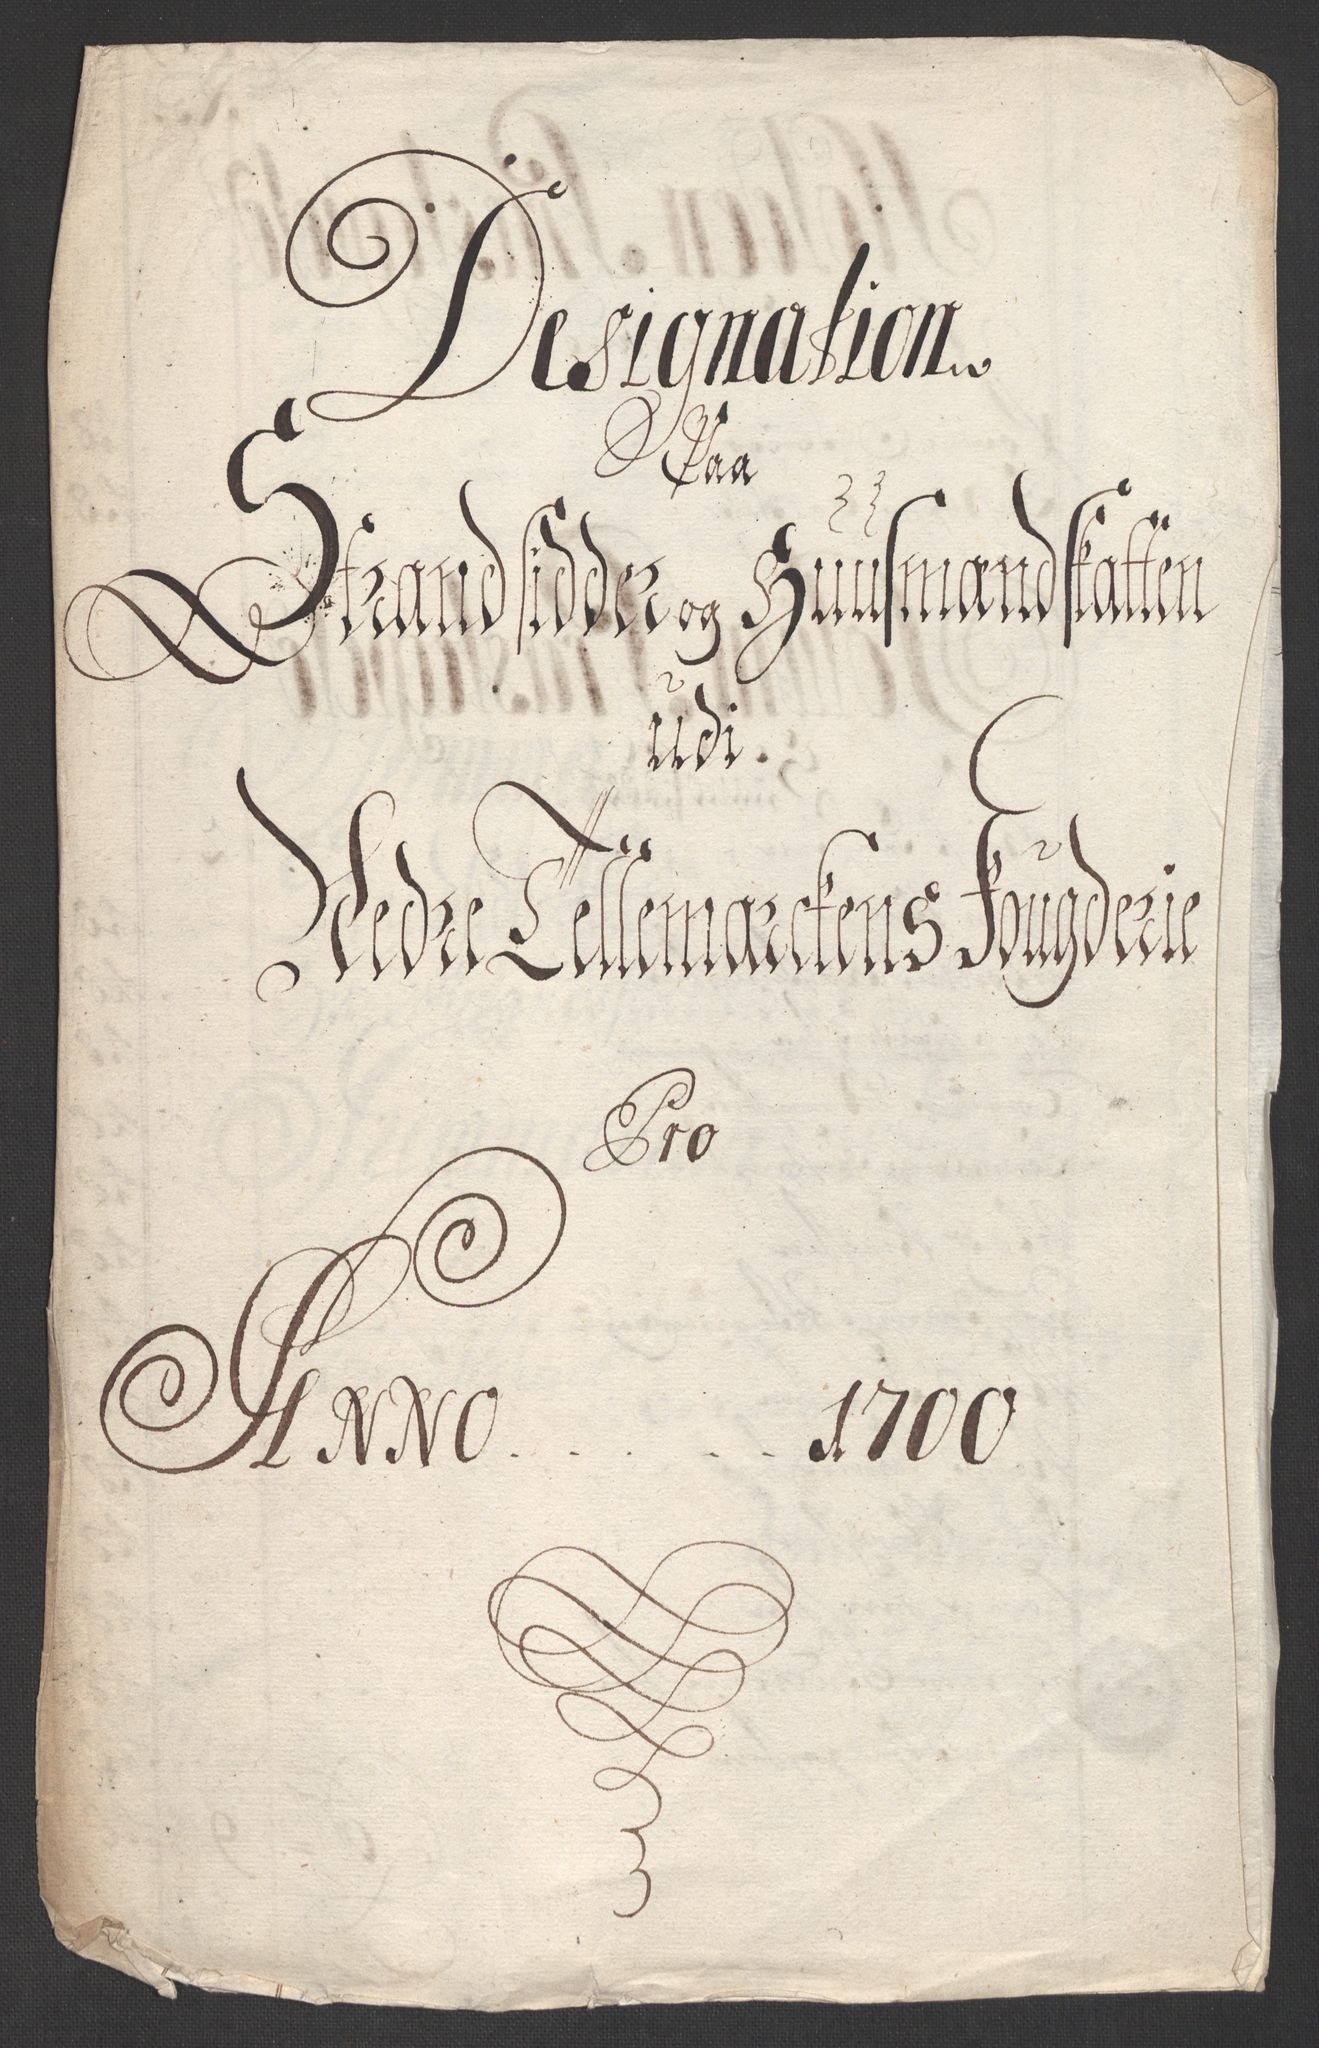 Designation
Paa
Strandsidder og Huusmandskatten
udi
Nedre Tellemarckens Fougderie
Pro
ANNO . . . . . . 1700